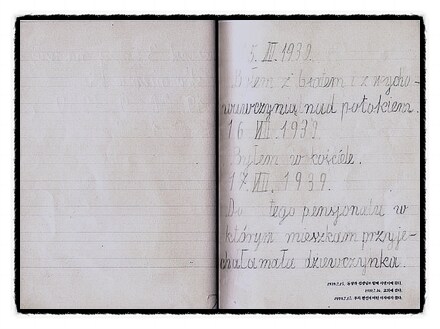 5. VII. 1939.
Byłem z bratem i z wycho-
wawczynią nad potokiem.
16 VII. 1939.
Byłem w kościele.
17. VII. 1939.
Do tego pensjonatu w
którym mieszkam przyje-
chała mała dziewczynka.
1939.7.15.
1939.7.16. 교회에 갔다.
1939.7.17.